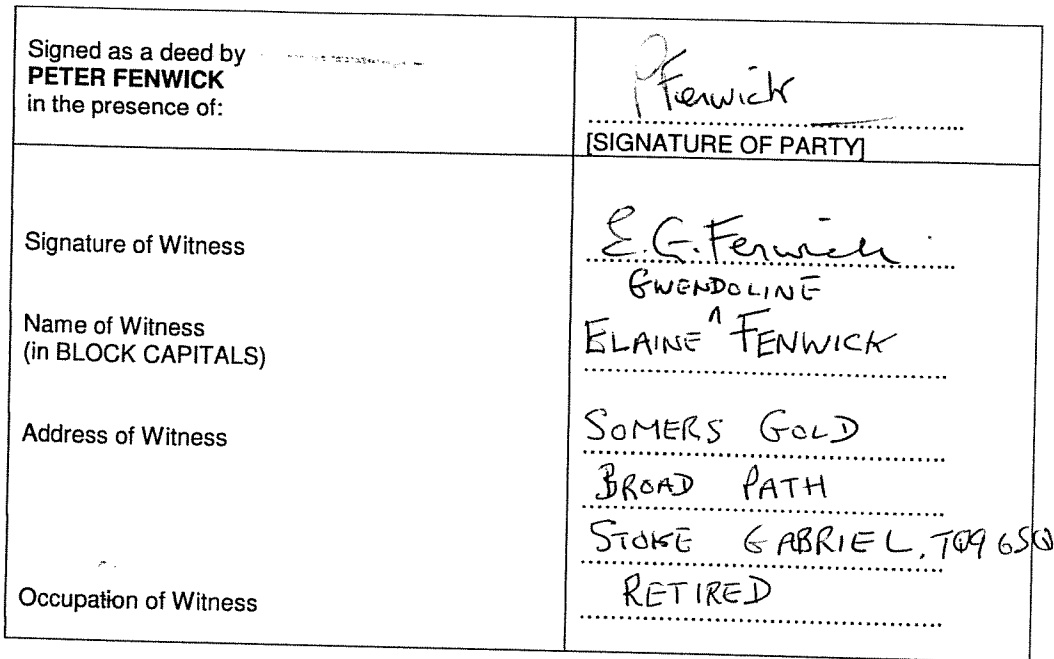 Signed as a deed by
PETER FENWICK
in the presence of:
PFenwick
[SIGNATURE OF PARTY]
Signature of Witness
E.G.Fenwick
Name of Witness
(in BLOCK CAPITALS)
GWENDOLINE
ELAINE ^ FENWICK
Address of Witness
SOMERS GOLD
BROAD PATH
STOKE GABRIEL, TQ9 6SQ
Occupation of Witness
RETIRED